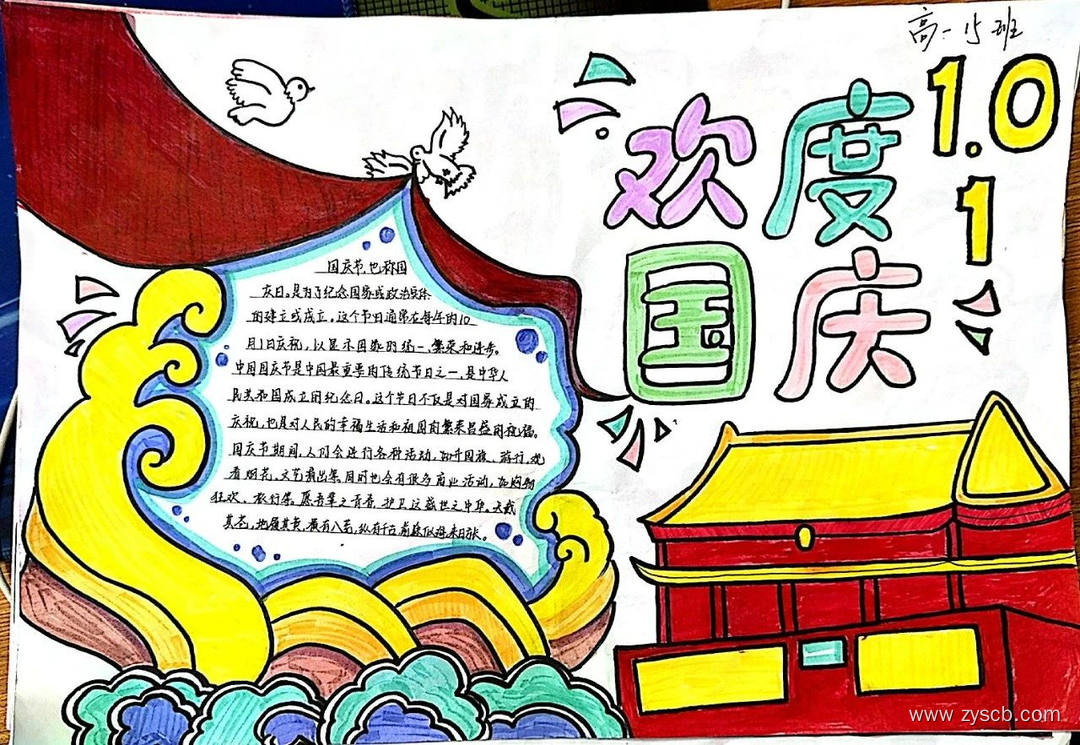 高一15班
欢度
国庆
1.0
1
国庆节,也称国
庆日。是为了纪念国家或政治实体
的建立或成立。这个节日通常在每年的10
月1日庆祝,以显示国家的统一、繁荣和进步。
中国国庆节是中国最重要的传统节日之一,是中华人
民共和国成立的纪念日。这个节日不仅是对国家成立的
庆祝,也是对人民的幸福生活和祖国的繁荣昌盛的祝福。
国庆节期间,人们会进行各种活动,如升国旗、游行、观
看烟花、文艺演出等。同时也会有很多商业活动,如购物
狂欢、旅行等。愿吾辈之青春,护卫这盛世之中华。天戴
其苍,地履其黄,横有八荒,纵有千古,前途似海,来日
www.zyscb.com